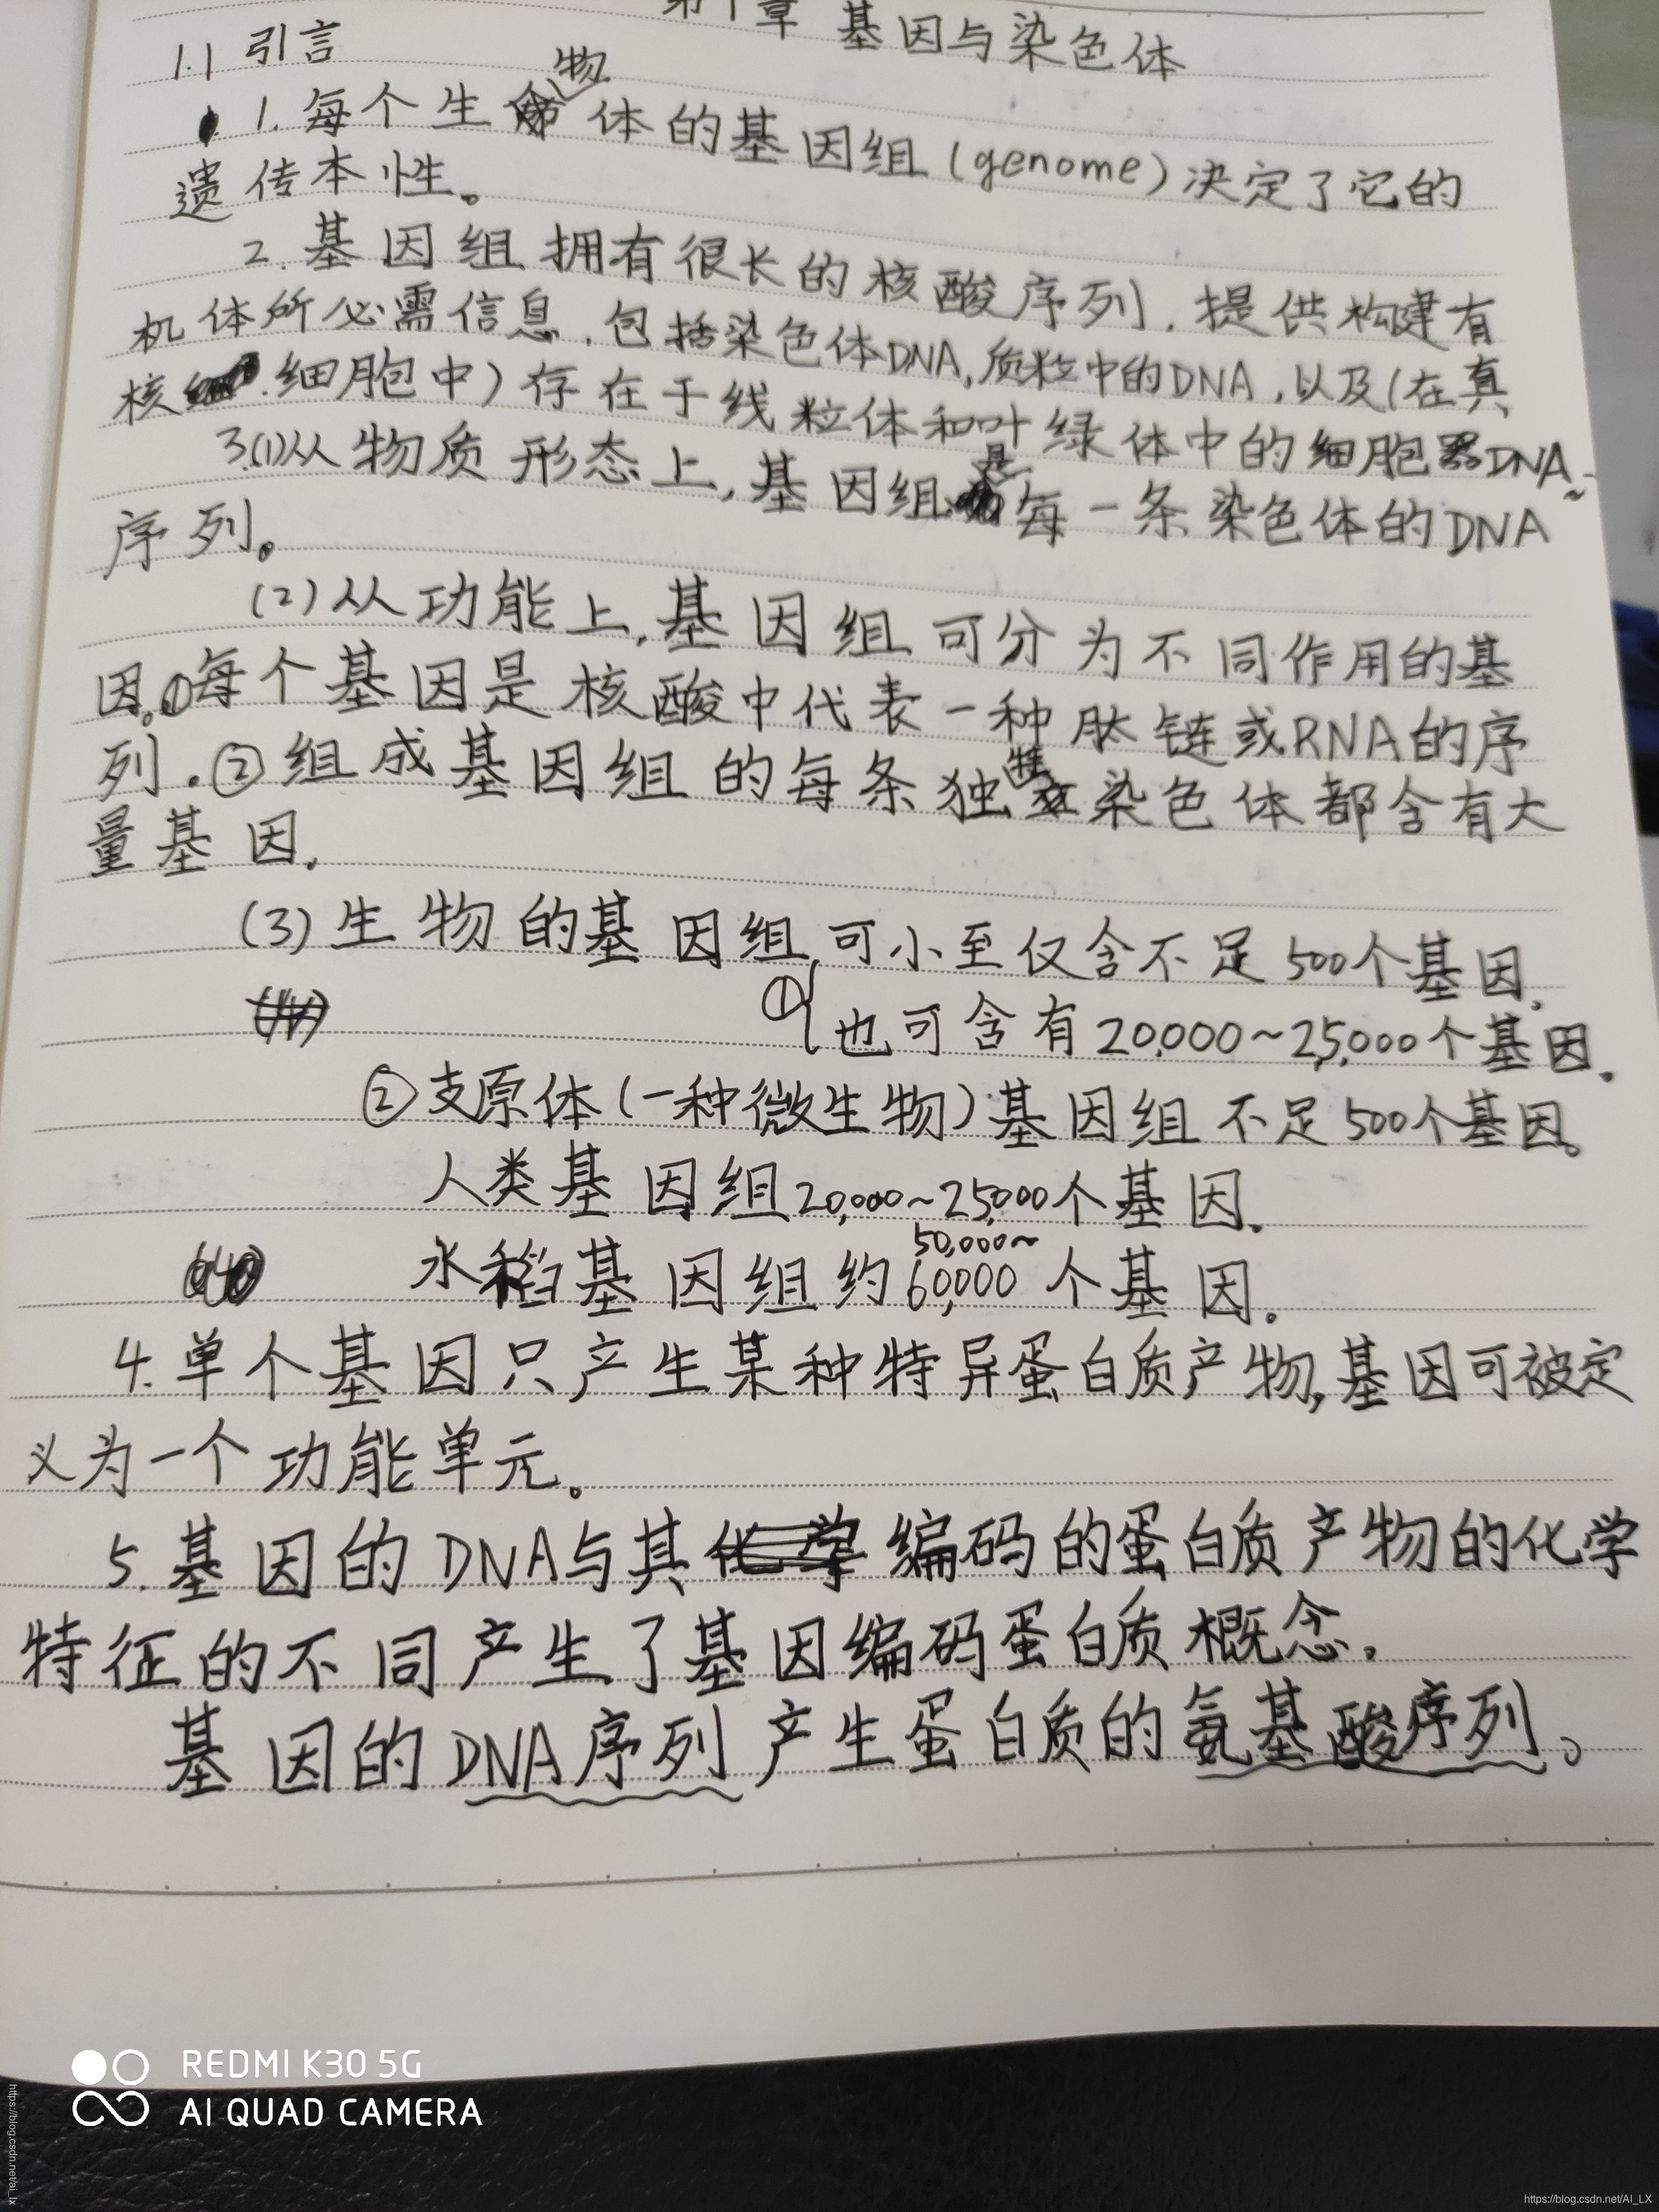 第1章 基因与染色体
1.1 引言
1. 每个生物体的基因组(genome)决定了它的
遗传本性。
2. 基因组拥有很长的核酸序列,提供构建有
机体所必需信息,包括染色体DNA,质粒中的DNA,以及(在真
核细胞中)存在于线粒体和叶绿体中的细胞器DNA~
3.(1)从物质形态上,基因组是每一条染色体的DNA
序列。
(2)从功能上,基因组可分为不同作用的基
因。①每个基因是核酸中代表一种肽链或RNA的序
列.②组成基因组的每条独特染色体都含有大
量基因.
(3)生物的基因组可小至仅含不足500个基因.
①也可含有20,000~25,000个基因.
②支原体(一种微生物)基因组不足500个基因。
人类基因组20,000~25,000个基因.
水稻基因组约50,000~60,000个基因.
4. 单个基因只产生某种特异蛋白质产物,基因可被定
义为一个功能单元。
5. 基因的DNA与其编码的蛋白质产物的化学
特征的不同产生了基因编码蛋白质概念.
基因的DNA序列产生蛋白质的氨基酸序列。
REDMI K30 5G
AI QUAD CAMERA
https://blog.csdn.net/ai_lx
https://blog.csdn.net/AI_LX